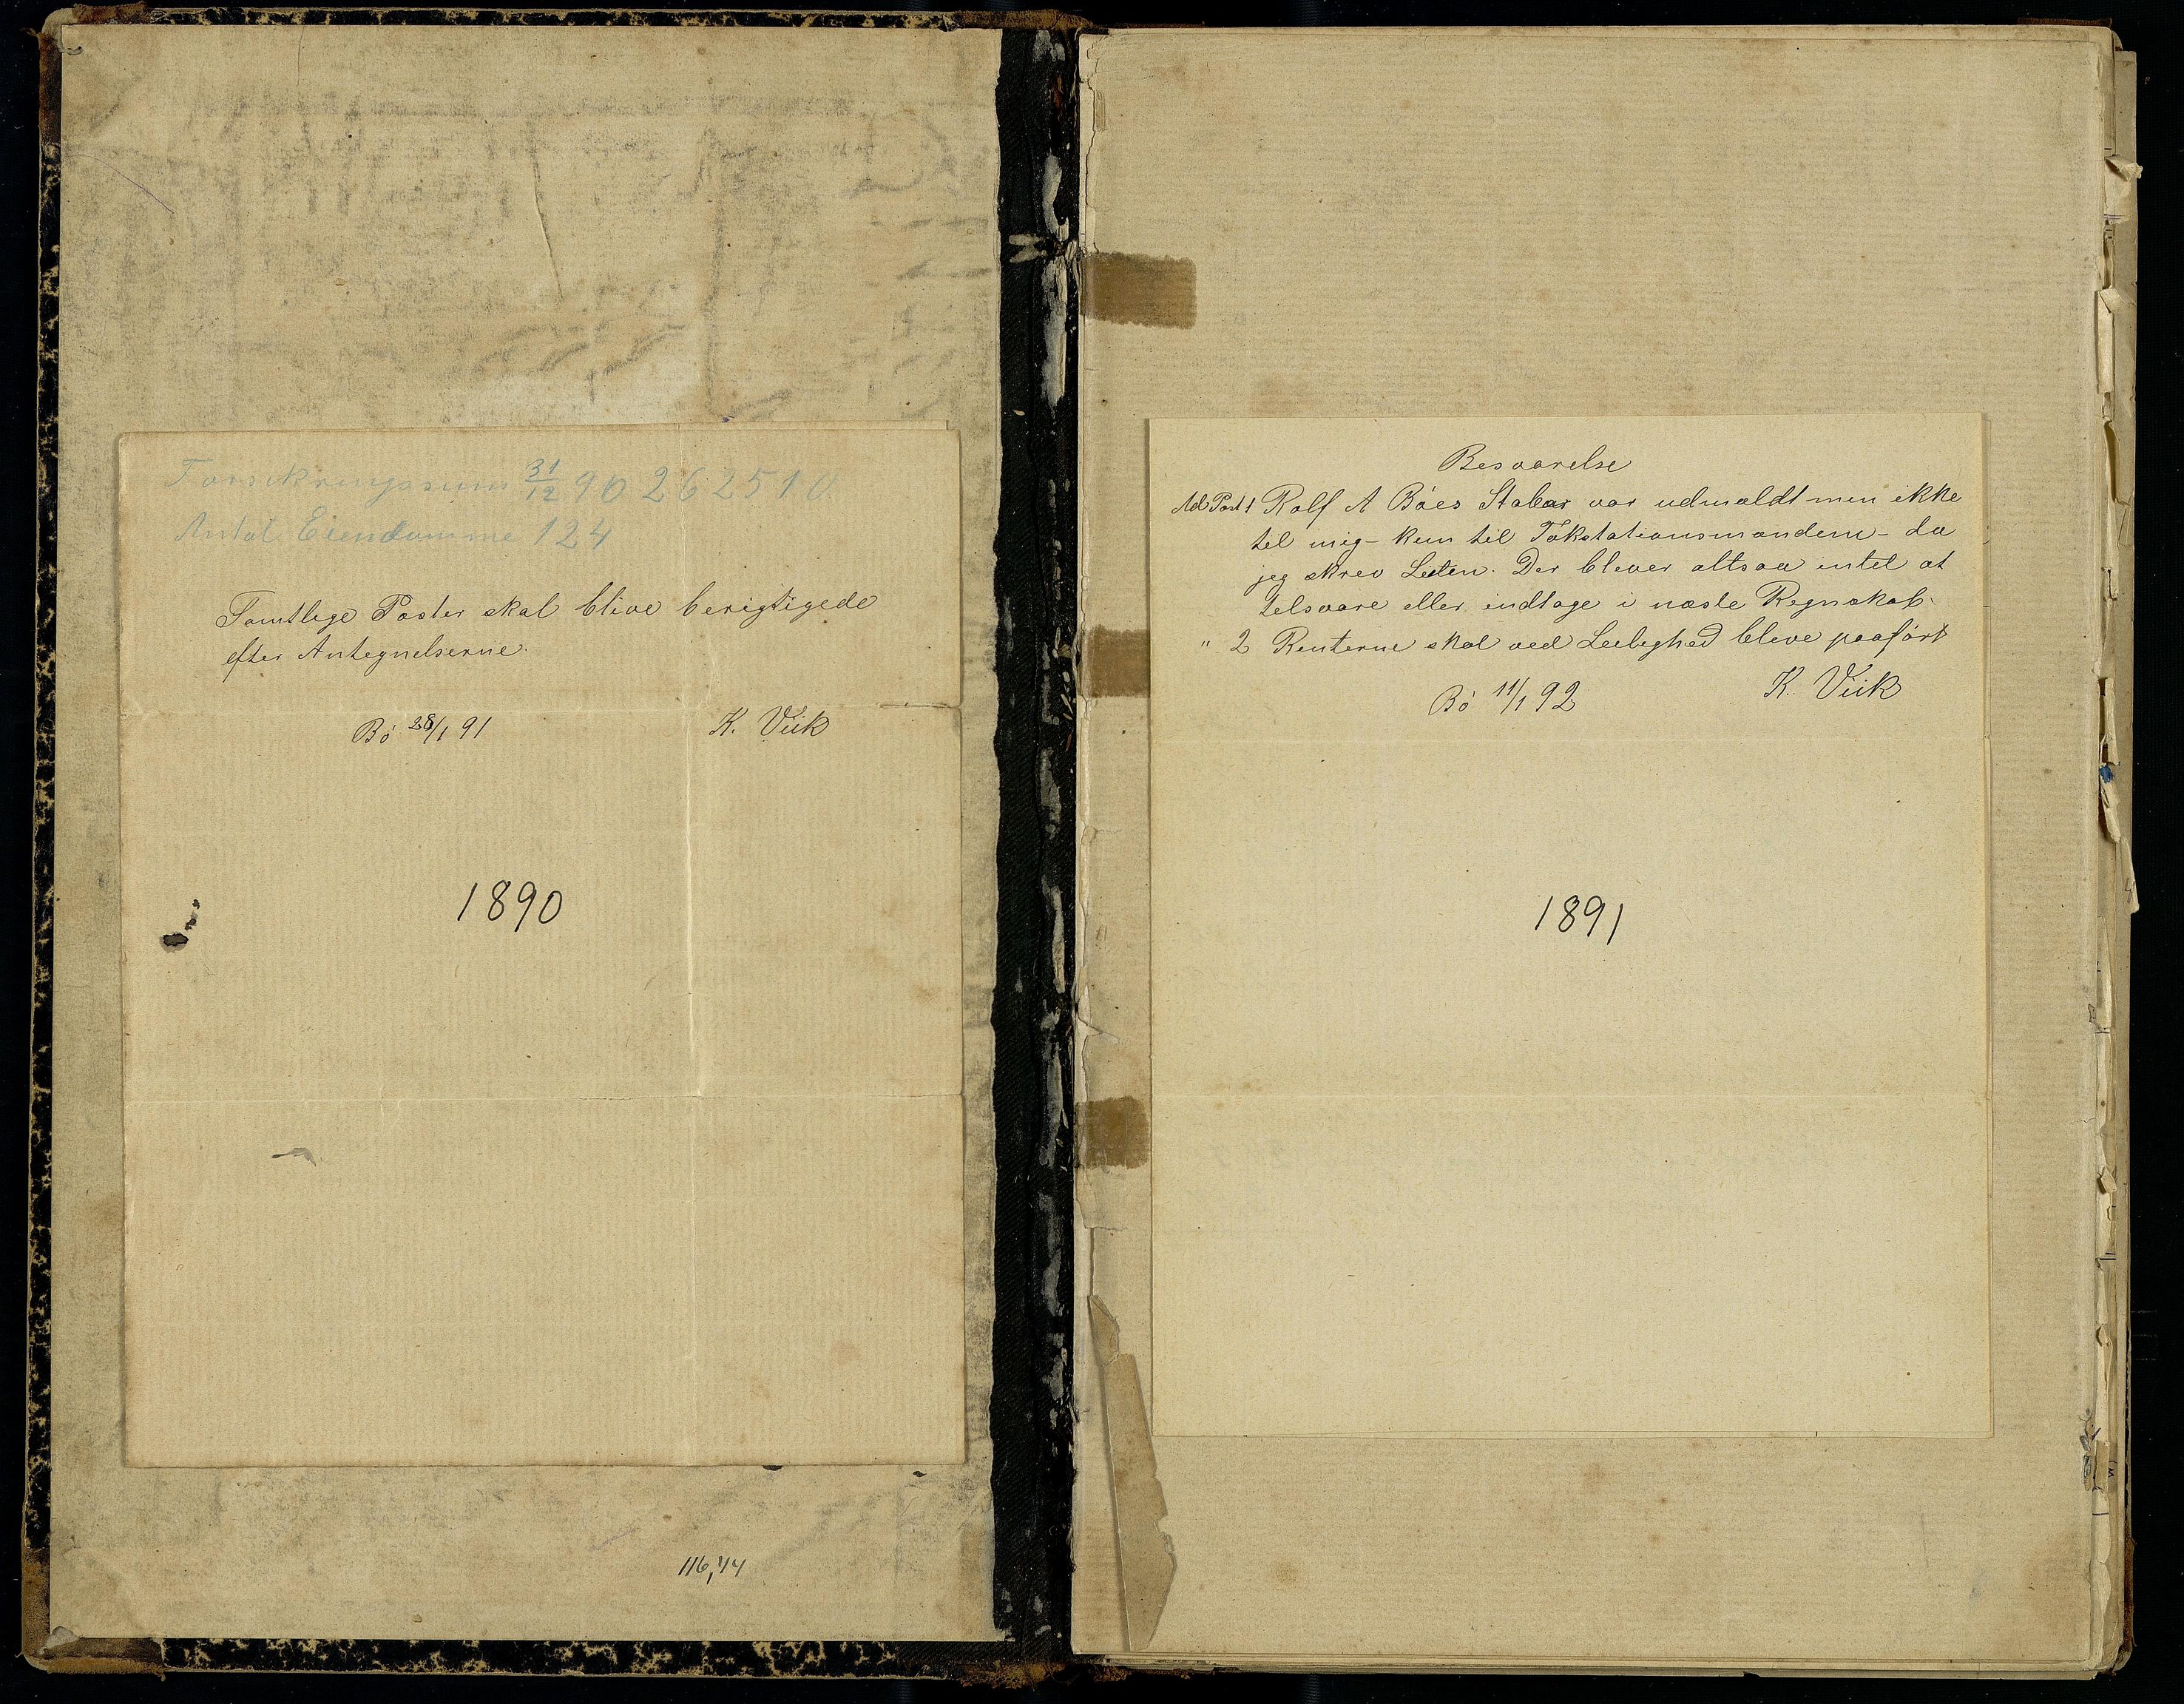 Forsikringssum 31/12 90 262510.
Antal Eiendomme 124
Samtlige Poster skal blive berigtigede
efter Antegnelserne.
Bö 28/1 91 K. Viik
1890
116,44
Besvarelse
Ad Post 1 Rolf A Böes Stabur var udmeldt men ikke
til mig - kun til Takstationsmændene - da
jeg skrev Listen. Der bliver altsaa intet at
tilsvare eller indtage i næste Regnskab.
" 2 Renterne skal ved Leilighed blive paafört
Bö 11/1 92 K. Viik
1891